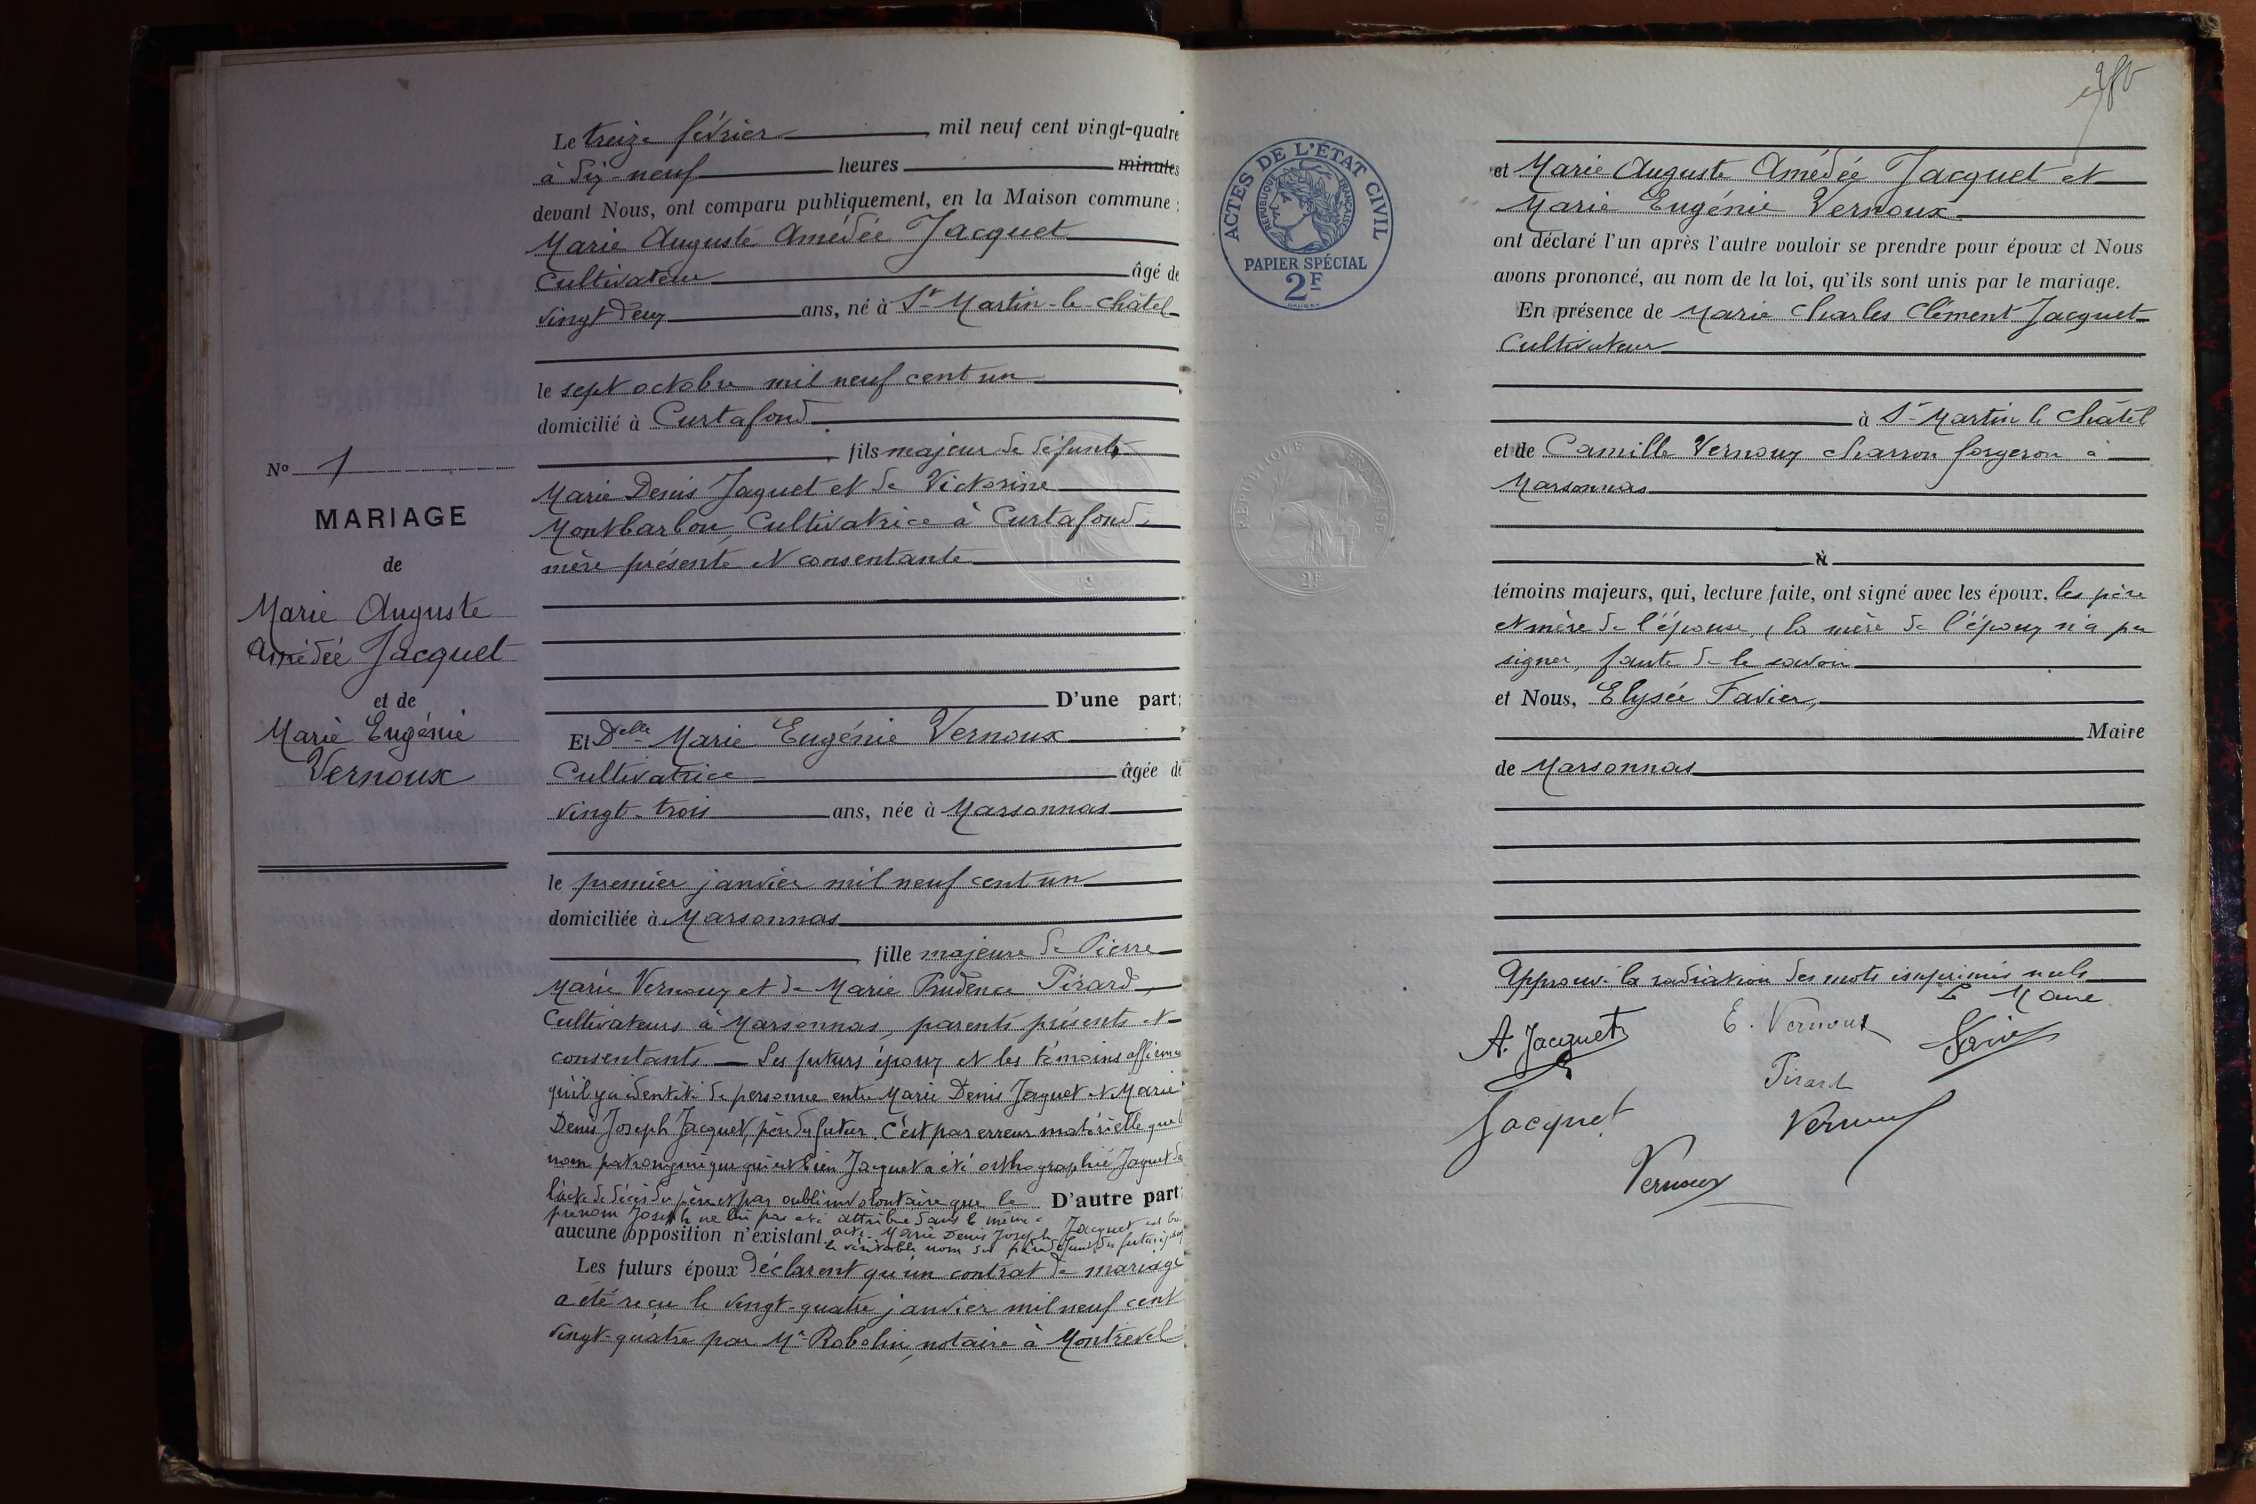 Le treize février mil neuf cent vingt-quatre
à dix-neuf heures minutes
devant Nous, ont comparu publiquement, en la Maison commune :
Marie Auguste Amédée Jacquet
Cultivateur âgé de
vingt deux ans, né à St Martin-le-Châtel
le sept octobre mil neuf cent un
domicilié à Curtafond
fils majeur de défunt
Marie Denis Jaquet et de Victorine
Montbarbon, Cultivatrice à Curtafond,
mère présente et consentante
D'une part;
Et Delle Marie Eugénie Vernoux
Cultivatrice âgée de
vingt-trois ans, née à Marsonnas
le premier janvier mil neuf cent un
domiciliée à Marsonnas
fille majeure de Pierre
Marie Vernoux et de Marie Prudence Pirard,
Cultivateurs à Marsonnas, parents présents et
consentants — Les futurs époux et les témoins affirment
qu'il y a identité de personne entre Marie Denis Jaquet et Marie
Denis Joseph Jacquet, père du futur. C'est par erreur matérielle que le
nom patronymique qui est bien Jacquet a été orthographié Jaquet dans
l'acte de décès du père et par oubli involontaire que le D'autre part;
prénom Joseph ne lui pas été attribué dans le même
aucune opposition n'existant acte. Marie Denis Joseph Jacquet est bien
le véritable nom du père défunt du futur époux
Les futurs époux déclarent qu'un contrat de mariage
a été reçu le vingt-quatre janvier mil neuf cent
vingt-quatre par Me Robolin, notaire à Montrevel
No 1
MARIAGE
de
Marie Auguste
Amédée Jacquet
et de
Marie Eugénie
Vernoux
ACTES DE L'ÉTAT CIVIL
RÉPUBLIQUE FRANÇAISE
PAPIER SPÉCIAL
2F
RÉPUBLIQUE FRANÇAISE
2F
et Marie Auguste Amédée Jacquet et
Marie Eugénie Vernoux
ont déclaré l'un après l'autre vouloir se prendre pour époux et Nous
avons prononcé, au nom de la loi, qu'ils sont unis par le mariage.
En présence de Marie Charles Clément Jacquet
Cultivateur
à St Martin le Châtel
et de Camille Vernoux charron forgeron à
Marsonnas
à
témoins majeurs, qui, lecture faite, ont signé avec les époux, les père
et mère de l'épouse, la mère de l'époux n'a pu
signer, faute de le savoir
et Nous, Elysée Favier,
Maire
de Marsonnas
Approuvé la radiation des mots imprimés nuls
Le Maire
A. Jacquet
E. Vernoux
Favier
Pirard
Jacquet
Vernoux
Vernoux